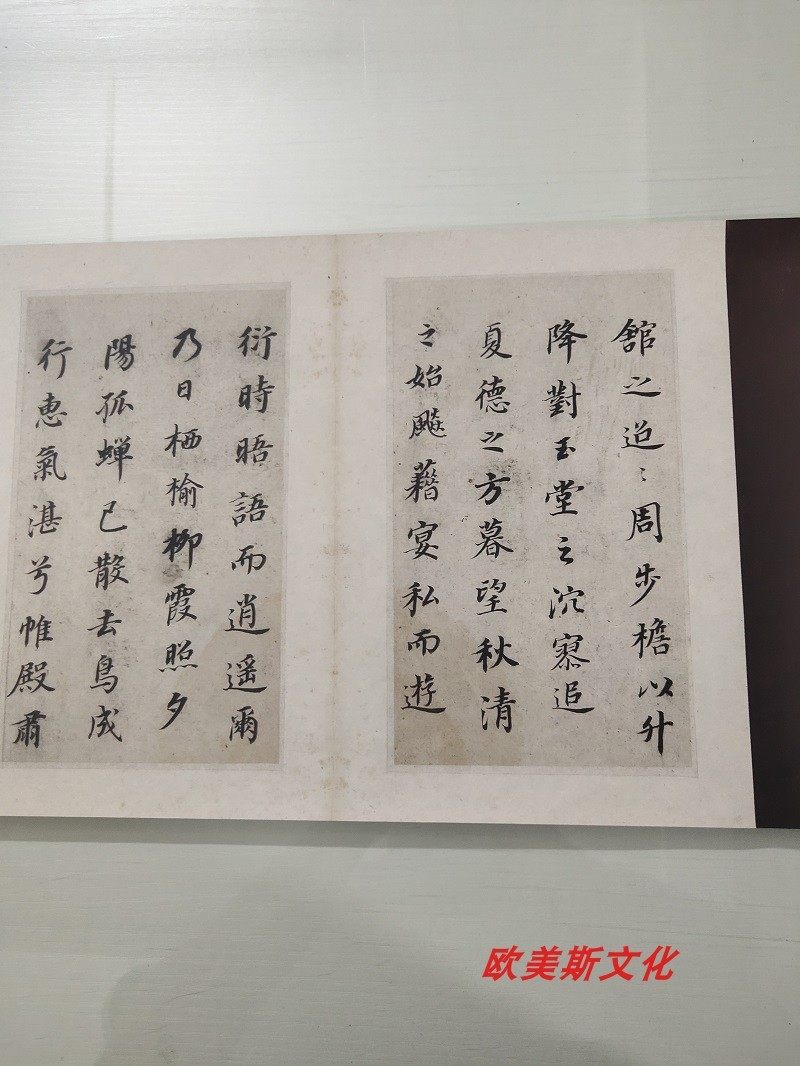 舘之迢〻周步檐以升
降對玉堂之泬寥追
夏德之方暮望秋清
之始飈藉宴私而遊
衍時晤語而逍遥爾
乃日栖榆柳霞照夕
陽孤蝉已散去鳥成
行惠氣湛兮帷殿肅
欧美斯文化